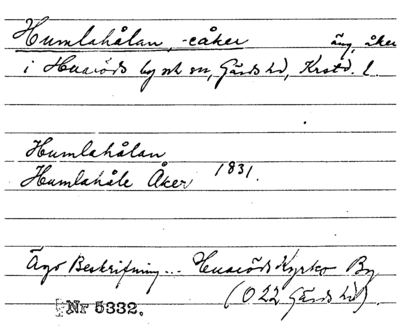 Humlahålan, -eåker äng, åker
i Huaröds by och sn, Gärds hd, Krstd. l.
Humlahålan
Humlahåle Åker 1831.
Ägo Beskrifning... Huaröds Kyrko By
(O 22 Gärds hd).
Nr 5332.